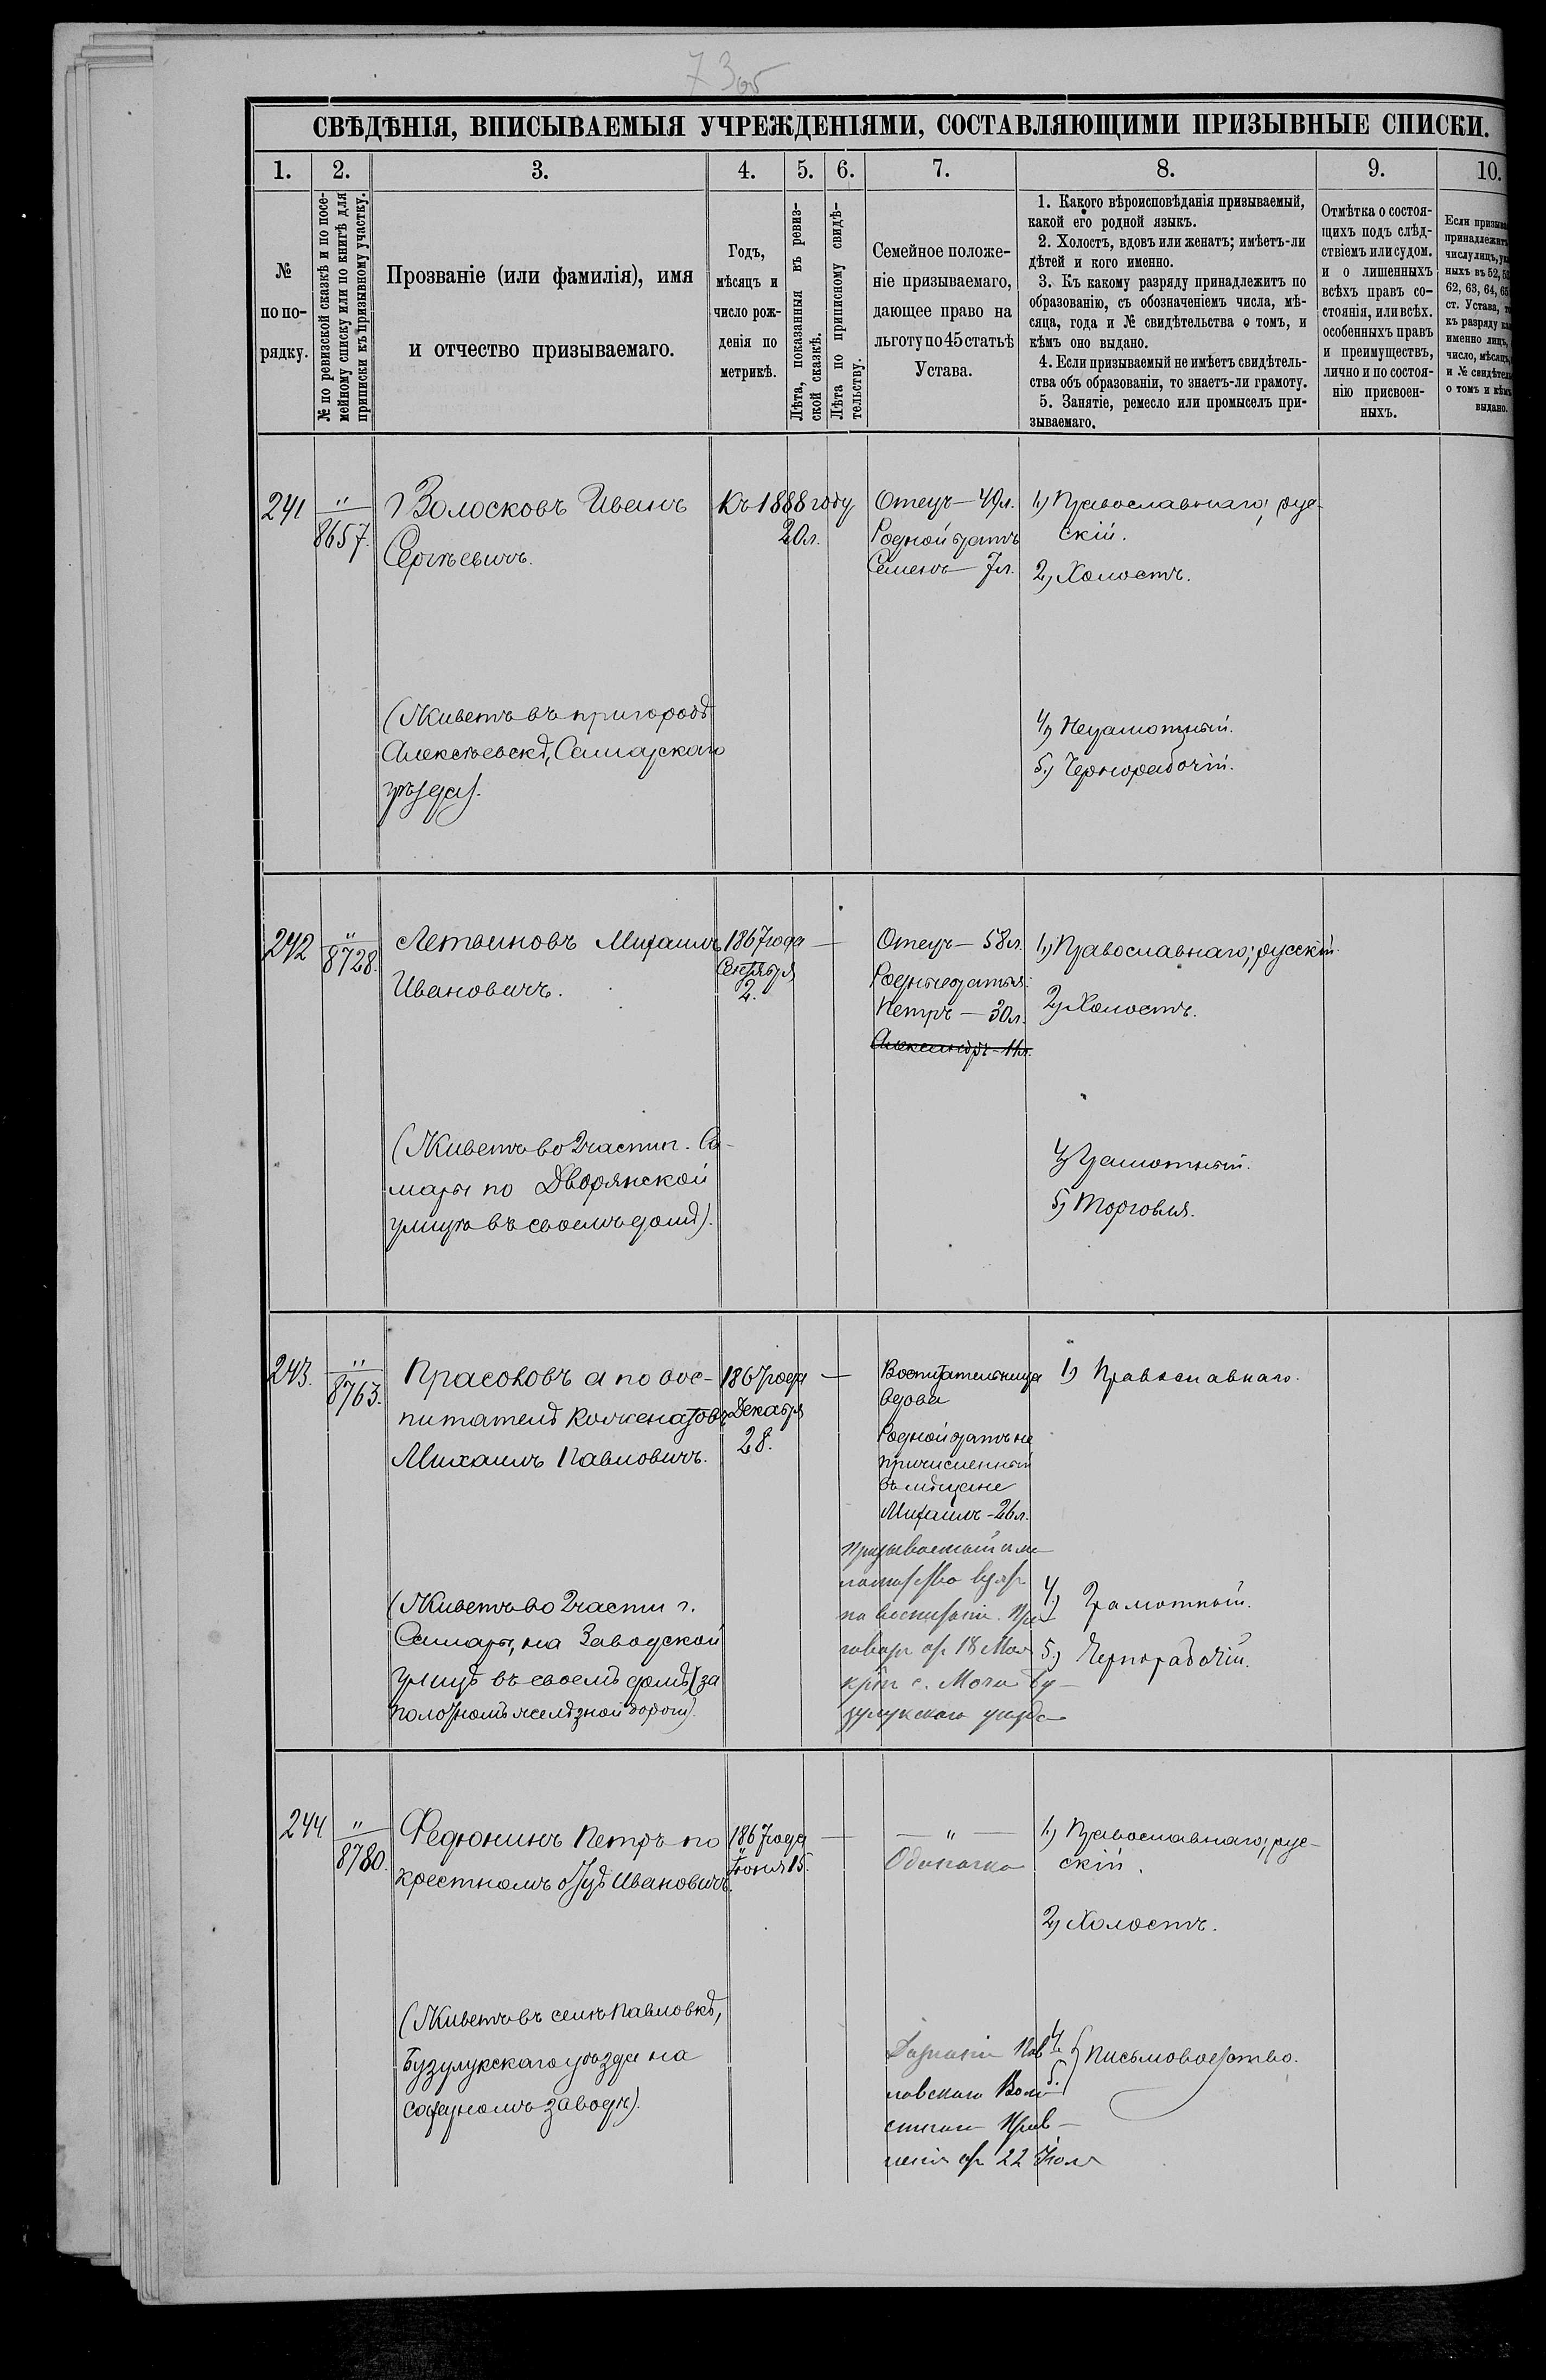 73об
СВѢДѢНІЯ, ВПИСЫВАЕМЫЯ УЧРЕЖДЕНІЯМИ, СОСТАВЛЯЮЩИМИ ПРИЗЫВНЫЕ СПИСКИ.
1. 2. 3. 4. 5. 6. 7. 8. 9. 10.
№
по по-
рядку.
№ по ревизской сказкѣ и по посе-
мейному списку или по книгѣ для
приписки къ призывному участку.
Прозваніе (или фамилія), имя
и отчество призываемаго.
Годъ,
мѣсяцъ и
число рож-
денія по
метрикѣ.
Лѣта, показанныя въ ревиз-
ской сказкѣ.
Лѣта по приписному свидѣ-
тельству.
Семейное положе-
ніе призываемаго,
дающее право на
льготу по 45 статьѣ
Устава.
1. Какого вѣроисповѣданія призываемый,
какой его родной языкъ.
2. Холостъ, вдовъ или женатъ; имѣетъ-ли
дѣтей и кого именно.
3. Къ какому разряду принадлежитъ по
образованію, съ обозначеніемъ числа, мѣ-
сяца, года и № свидѣтельства о томъ, и
кѣмъ оно выдано.
4. Если призываемый не имѣетъ свидѣтель-
ства объ образованіи, то знаетъ-ли грамоту.
5. Занятіе, ремесло или промыселъ при-
зываемаго.
Отмѣтка о состоя-
щихъ подъ слѣд-
ствіемъ или судомъ.
и о лишенныхъ
всѣхъ правъ со-
стоянія, или всѣх.
особенныхъ правъ
и преимуществъ,
лично и по состоя-
нію присвоен-
ныхъ.
Если призыв
принадлежитъ
числу лицъ, ука
ныхъ въ 52, 5
62, 63, 64, 65
ст. Устава, то
къ разряду ка
именно лицъ,
число, мѣсяцъ,
и № свидѣтель
о томъ и кѣмъ
выдано.
241
"
8657.
Волосковъ Иванъ
Сергѣевичъ.
Къ 1888 году
20 л.
Отецъ — 49 л.
Родной братъ
Семенъ — 7 л.
1) Православнаго; рус-
скій.
2) Холостъ.
(Живетъ въ пригородѣ
Алексѣевскѣ, Самарскаго
уѣзда).
4) Неграмотный.
5) Чернорабочій.
242
"
8728.
Летвиновъ Михаилъ
Ивановичъ.
1867 года
Сентября
2.
—
Отецъ — 58 л.
Родные братья:
Петръ — 30 л.
Александръ - 11 л.
1) Православнаго; русскій.
2) Холостъ.
(Живетъ во 2 части г. Са-
мары по Дворянской
улицѣ въ своемъ домѣ).
4) Грамотный.
5) Торговля.
243.
"
8763.
Прасоловъ а по вос-
питателю
Михаилъ Павловичъ.
1867 года
Декабря
28.
—
Воспитательница
вдова
Родной братъ не
причисленный
въ мѣщане
Михаилъ - 26 л.
1) Православнаго.
(Живетъ во 2 части г.
Самары, на Заводской
улицѣ въ своемъ домѣ (за
полотномъ желѣзной дороги).
Призываемый
взятъ
на воспитаніе. При-
говоръ от 18 Мая
с. Бу-
зулукскаго уѣзда
4.) Грамотный.
5.) Чернорабочій.
244
"
8780.
Федюнинъ Петръ по
крестномъ отцѣ Ивановичъ.
1867 года
Іюня 15.
—
— " —
Одиночка
1.) Православнаго; рус-
скій.
2) Холостъ.
(Живетъ въ селѣ Павловкѣ,
Бузулукскаго уѣзда на
заводѣ).
Пав
ловскаго Воло
стнаго Прав-
ленія от 22 Іюля
4.
5.
Письмоводство.